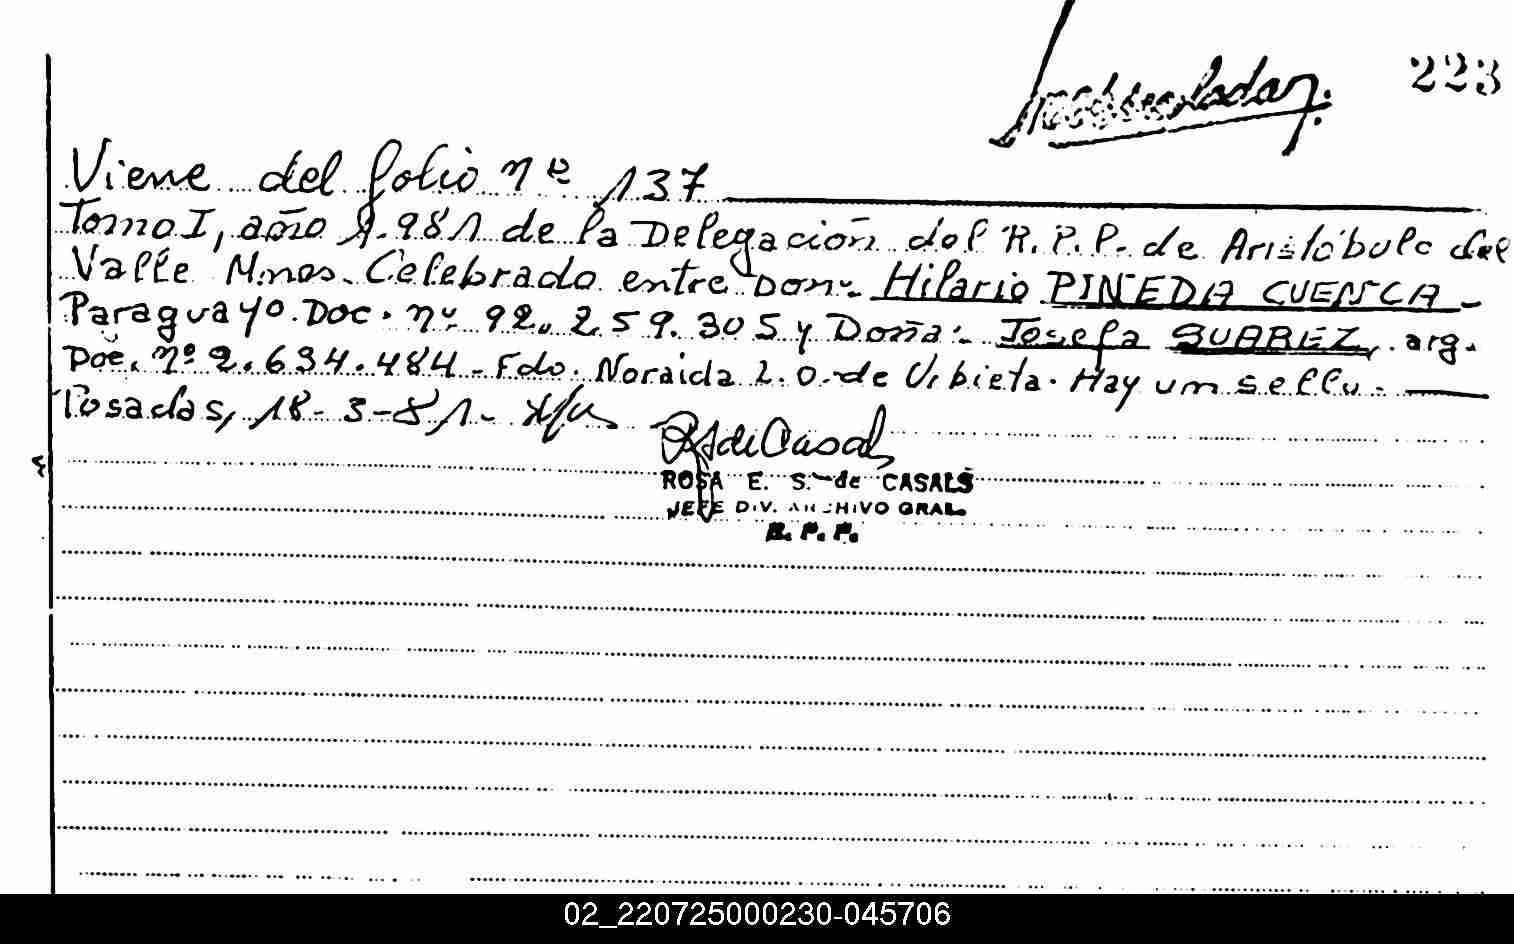 223
Viene del folio nº 137
Tomo I, año 1.981 de la Delegación del R.P.P. de Aristóbulo del
Valle Mnes. Celebrado entre Don: Hilario PINEDA CUENCA -
Paraguayo. Doc. nº 92.259.305 y Doña: Josefa SUAREZ, arg.
Doc. nº 2.634.484 - Fdo. Noraida L.O. de Urbieta. Hay un sello.
Posadas, 18-3-81-
ROSA E. S. de CASALS
JEFE DIV. ARCHIVO GRAL.
R. P. P.
02_220725000230-045706